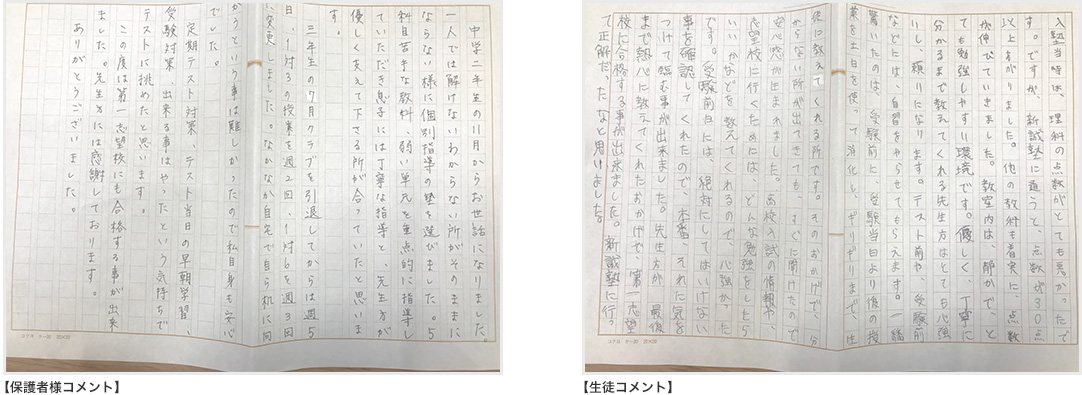 中学二年生の11月からお世話になりました。
一人では解けないわからない所がそのままに
ならない様に個別指導の塾を選びました。5
科目苦手な教科、弱い単元を重点的に指導し
ていただき息子には丁寧な指導と、先生方が
優しく支えて下さる所が合っていたと思いま
す。
三年生の7月クラブを引退してからは週5
日、1対3の授業を週2回、1対6を週3回
に変更しました。なかなか自宅で自ら机に向
かうという事は難しかったので私自身も安心
でした。
定期テスト対策、テスト当日の早朝学習、
受験対策、出来る事はやったという気持ちで
テストに挑めたと思います。
この度は第一志望校にも合格する事が出来
ました。先生方には感謝しております。
ありがとうございました。
【保護者様コメント】
入塾当時は、理科の点数がとても悪かったで
す。ですが、新誠塾に通うと、点数が30点
以上あがりました。他の教科も着実に、点数
が伸びていきました。教室内は、静かで、と
ても勉強しやすい環境です。優しく、丁寧に
分かるまで教えてくれる先生方はとても心強
いし、頼りになります。テスト前や、受験前
などには、自習をやらせてもらえます。一番
驚いたのは、受験前に、受験当日より後の授
業を土日を使って消化し、ギリギリまで、生
徒に教えてくれる所です。そのおかげで、分
からない所が出てきても、すぐに聞けたので
安心感が生まれました。高校入試の情報や、
志望校に行くためには、どんな勉強をしたら
いいかなどを教えてくれるので、心強かった
です。受験前日には、絶対にしてはいけない
事を確認してくれたので、本番、それに気を
つけて臨む事が出来ました。先生方が、最後
まで熱心に教えてくれたおかげで、第一志望
校に合格する事が出来ました。新誠塾に行っ
て正解だったなと思えました。
【生徒コメント】